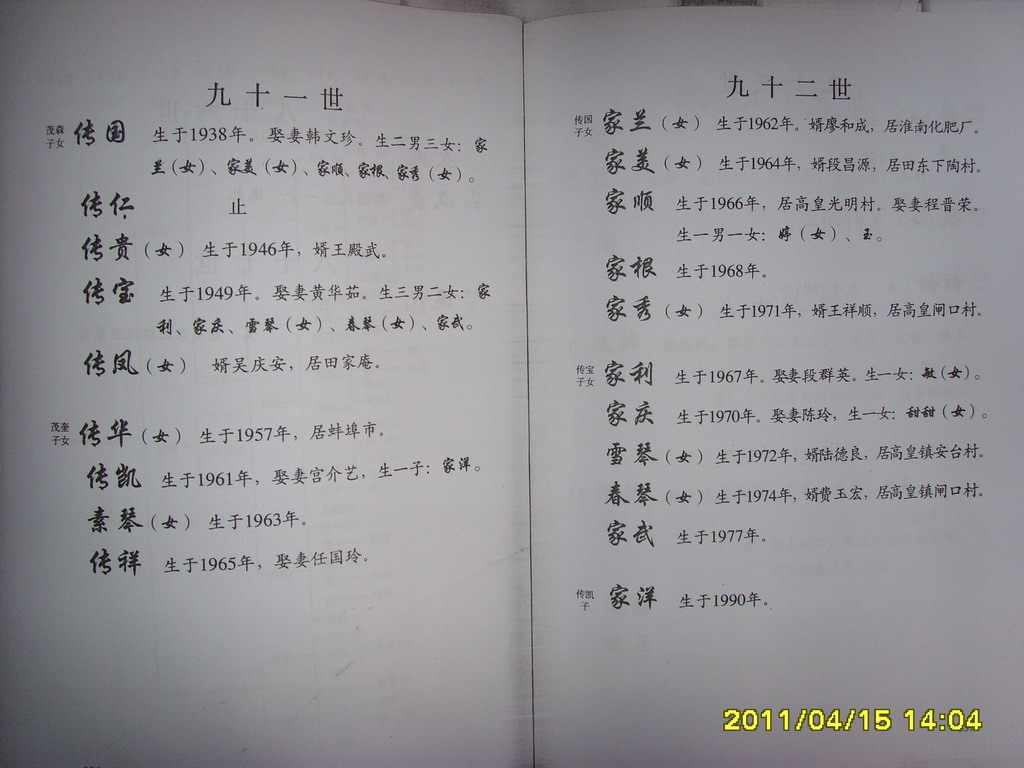 九十一世
茂森
子女
传国 生于1938年。娶妻韩文珍。生二男三女：家
兰（女）、家美（女）、家顺、家根、家秀（女）。
传仁 止
传贵（女） 生于1946年，婿王殿武。
传宝 生于1949年。娶妻黄华茹。生三男二女：家
利、家庆、雪琴（女）、春琴（女）、家武。
传凤（女） 婿吴庆安，居田家庵。
茂奎
子女
传华（女） 生于1957年，居蚌埠市。
传凯 生于1961年，娶妻宫介艺，生一子：家洋。
素琴（女） 生于1963年。
传祥 生于1965年，娶妻任国玲。
九十二世
传国
子女
家兰（女） 生于1962年。婿廖和成，居淮南化肥厂。
家美（女） 生于1964年，婿段昌源，居田东下陶村。
家顺 生于1966年，居高皇光明村。娶妻程晋荣。
生一男一女：婷（女）、玉。
家根 生于1968年。
家秀（女） 生于1971年，婿王祥顺，居高皇闸口村。
传宝
子女
家利 生于1967年。娶妻段群英。生一女：敏（女）。
家庆 生于1970年。娶妻陈玲，生一女：甜甜（女）。
雪琴（女） 生于1972年，婿陆德良，居高皇镇安台村。
春琴（女） 生于1974年，婿费玉宏，居高皇镇闸口村。
家武 生于1977年。
传凯
子
家洋 生于1990年。
2011/04/15 14:04